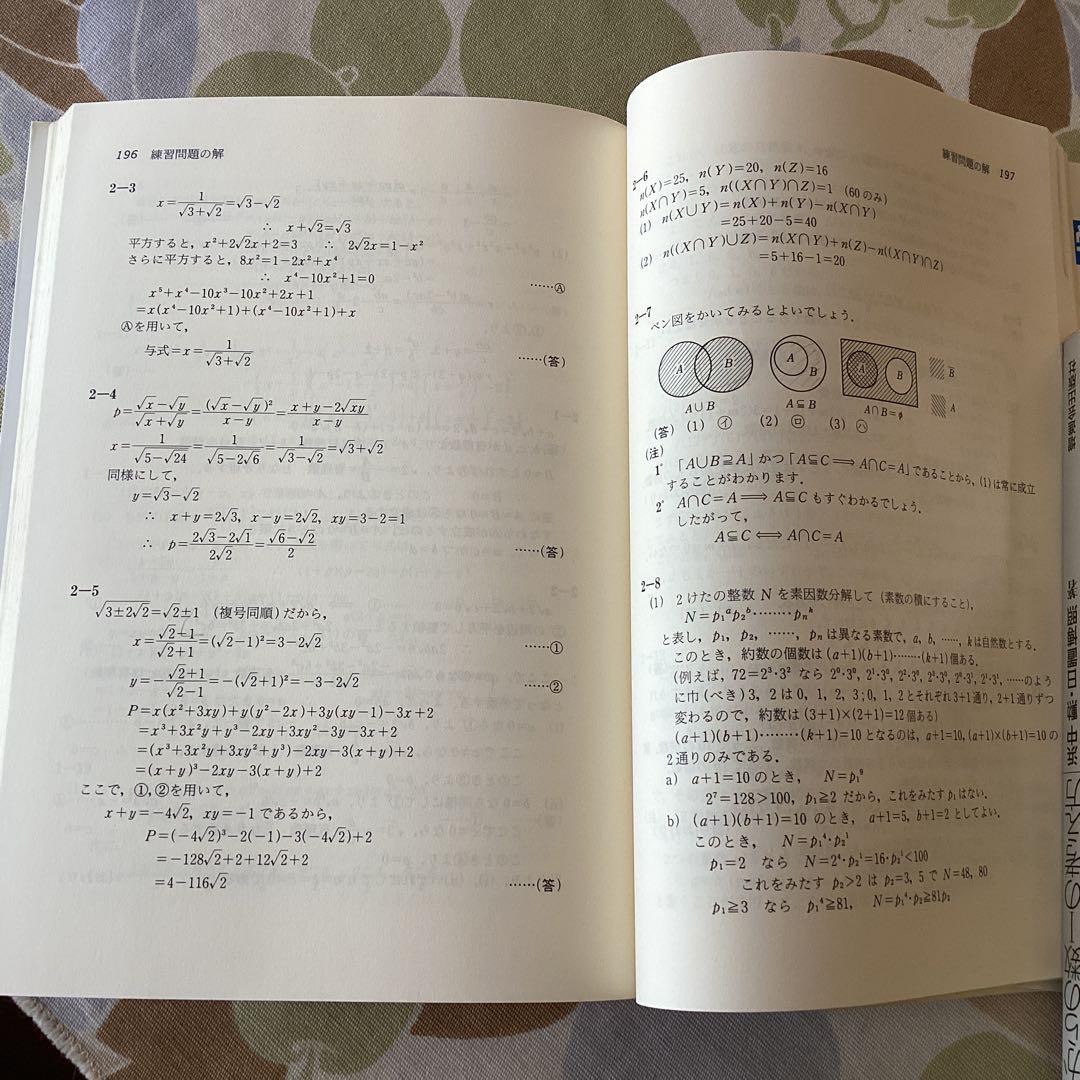 196 練習問題の解
2―3
x=1/(√3+√2)=√3−√2
∴ x+√2=√3
平方すると，x²+2√2x+2=3 ∴ 2√2x=1−x²
さらに平方すると，8x²=1−2x²+x⁴
∴ x⁴−10x²+1=0 ……Ⓐ
x⁵+x⁴−10x³−10x²+2x+1
=x(x⁴−10x²+1)+(x⁴−10x²+1)+x
Ⓐを用いて，
与式=x=1/(√3+√2) ……(答)
2―4
p=(√x−√y)/(√x+√y)=(√x−√y)²/(x−y)=(x+y−2√xy)/(x−y)
x=1/√(5−√24)=1/√(5−2√6)=1/(√3−√2)=√3+√2
同様にして，
y=√3−√2
∴ x+y=2√3, x−y=2√2, xy=3−2=1
∴ p=(2√3−2√1)/(2√2)=(√6−√2)/2 ……(答)
2―5
√(3±2√2)=√2±1 (複号同順)だから，
x=(√2−1)/(√2+1)=(√2−1)²=3−2√2 ……①
y=−(√2+1)/(√2−1)=−(√2+1)²=−3−2√2 ……②
P=x(x²+3xy)+y(y²−2x)+3y(xy−1)−3x+2
=x³+3x²y+y³−2xy+3xy²−3y−3x+2
=(x³+3x²y+3xy²+y³)−2xy−3(x+y)+2
=(x+y)³−2xy−3(x+y)+2
ここで，①,②を用いて，
x+y=−4√2, xy=−1 であるから，
P=(−4√2)³−2(−1)−3(−4√2)+2
=−128√2+2+12√2+2
=4−116√2 ……(答)
練習問題の解 197
2―6
n(X)=25, n(Y)=20, n(Z)=16
n(X∩Y)=5, n((X∩Y)∩Z)=1 (60のみ)
(1) n(X∪Y)=n(X)+n(Y)−n(X∩Y)
=25+20−5=40
(2) n((X∩Y)∪Z)=n(X∩Y)+n(Z)−n((X∩Y)∩Z)
=5+16−1=20
2―7
ベン図をかいてみるとよいでしょう．
A B A B A B B̅ A
A∪B A⊆B A∩B=φ
(答) (1) ㋑ (2) ㋺ (3) ㋩
(注)
1° 「A∪B⊇A」かつ「A⊆C⟹A∩C=A」であることから，(1)は常に成立
することがわかります．
2° A∩C=A⟹A⊆C もすぐわかるでしょう．
したがって，
A⊆C⟺A∩C=A
2―8
(1) 2けたの整数 N を素因数分解して (素数の積にすること)，
N=p₁ᵃp₂ᵇ⋯⋯⋯pₙᵏ
と表し，p₁, p₂, ……, pₙは異なる素数で，a, b, ……, kは自然数とする．
このとき，約数の個数は(a+1)(b+1)⋯⋯⋯(k+1)個ある．
(例えば，72=2³·3² なら 2⁰·3⁰, 2⁰·3¹, 2⁰·3², 2¹·3⁰, 2¹·3¹, ……のよう
に巾(べき)3, 2は0, 1, 2, 3；0, 1, 2とそれぞれ3+1通り，2+1通りずつ
変わるので，約数は(3+1)×(2+1)=12個ある)
(a+1)(b+1)⋯⋯⋯(k+1)=10となるのは，a+1=10, (a+1)×(b+1)=10の
2通りのみである．
a) a+1=10のとき， N=p₁⁹
2⁷=128>100, p₁≧2 だから，これをみたす p₁はない．
b) (a+1)(b+1)=10 のとき， a+1=5, b+1=2 としてよい．
このとき， N=p₁⁴·p₂¹
p₁=2 なら N=2⁴·p₂¹=16·p₂¹<100
これをみたす p₂>2 は p₂=3, 5で N=48, 80
p₁≧3 なら p₁⁴≧81, N=p₁⁴·p₂≧81p₂
浜中 勲・日置博照 著
増進会出版社